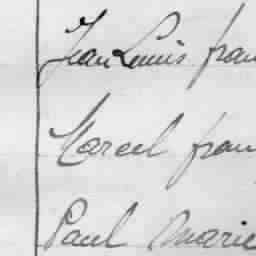 Jean Louis fran
Marcel fran
Paul Marie